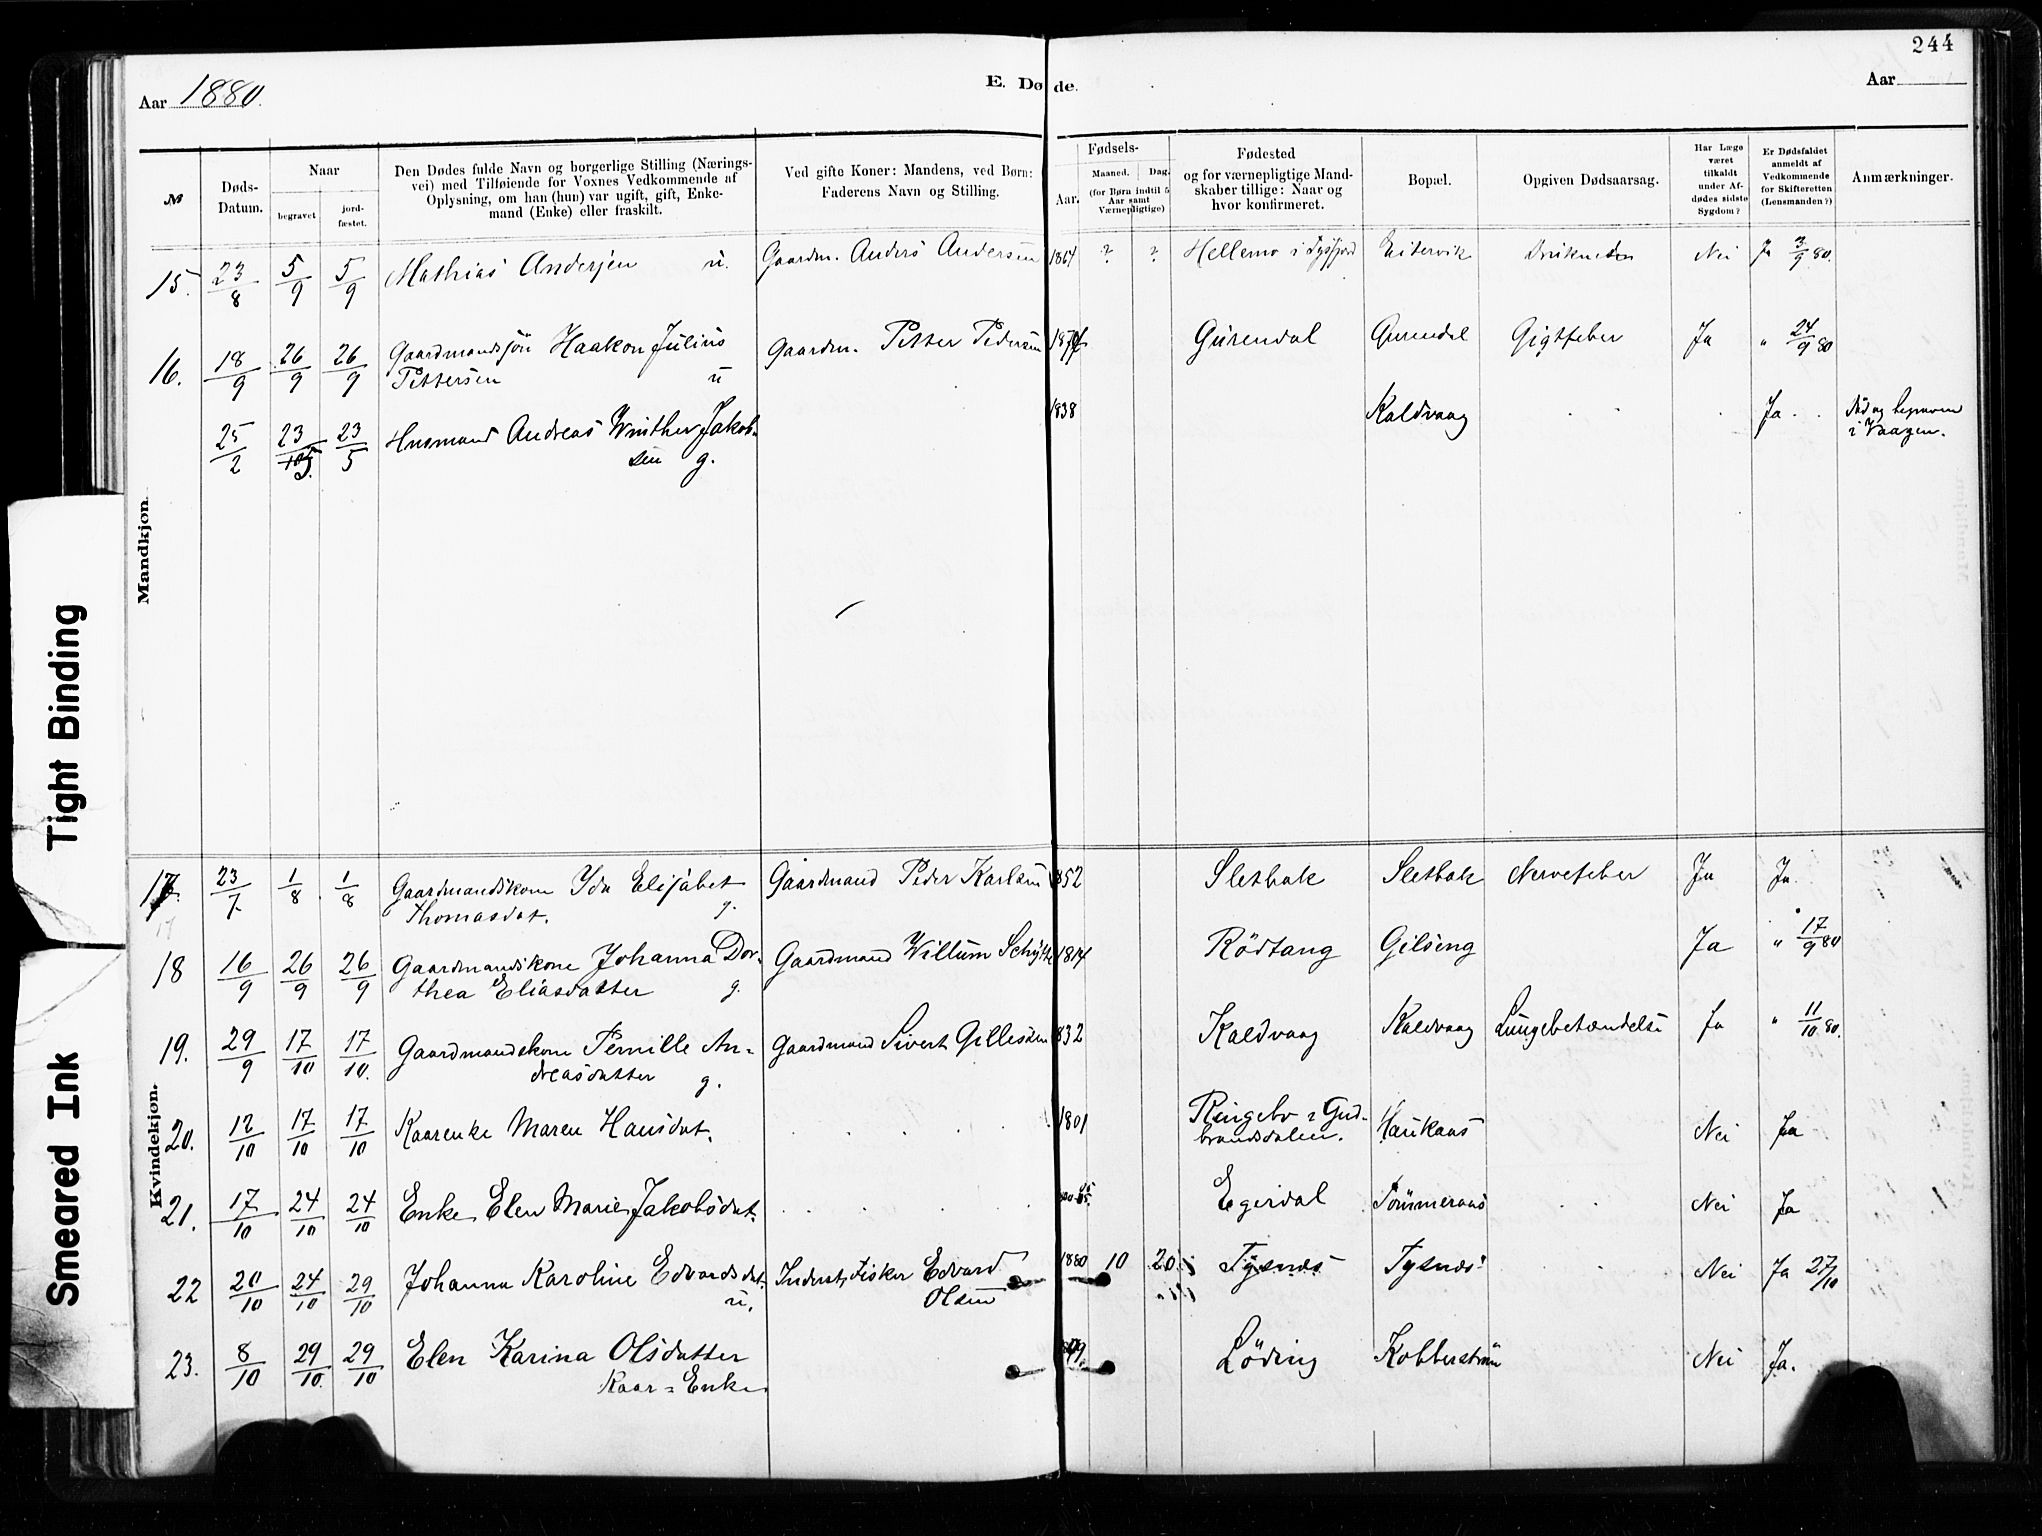 244
Aar 1880.
E. Døde.
Aar
№
Døds-
Datum.
Naar
begravet
jord-
fæstet.
Den Dødes fulde Navn og borgerlige Stilling (Nærings-
vei) med Tilføiende for Voxnes Vedkommende af
Oplysning, om han (hun) var ugift, gift, Enke-
mand (Enke) eller fraskilt.
Ved gifte Koner: Mandens, ved Børn:
Faderens Navn og Stilling.
Fødsels-
Aar.
Maaned.
Dag.
(for Børn indtil 5
Aar samt
Værnepligtige)
Fødested
og for værnepligtige Mand-
skaber tillige: Naar og
hvor konfirmeret.
Bopæl.
Opgiven Dødsaarsag.
Har Læge
været
tilkaldt
under Af-
dødes sidste
Sygdom?
Er Dødsfaldet
anmeldt af
Vedkommende
for Skifteretten
(Lensmanden?)
Anmærkninger.
Mandkjøn.
15. 23/8 5/9 5/9 Mathias Andersen u. Gaardm. Anders Andersen 1864 ? ? Hellemo i Tysfjord Eitervik Nei Ja 3/9 80.
16. 18/9 26/9 26/9 Gaardmandssøn Haakon Julius Gaardm. Petter Pedersen Gürendal Gurendal Gigtfeber Ja " 24/9 80
Pettersen u
25/2 23/5 23/5 Husmand Andreas Winther Jakob- 1838 Kaldvaag Ja. Död og begraven
sen g. i Vaagen.
Kvindekjøn.
17. 23/7 1/8 1/8 Gaardmandskone Ida Elisabet Gaardmand Peder Karlsen 1852 Sletbak Sletbak Nervefeber Ja Ja.
Thomasdat. g.
18 16/9 26/9 26/9 Gaardmandskone Johanna Dor- Gaardmand Willum Schytte 1814 Rödtang Gilseng Ja " 17/9 80
thea Eliasdatter g.
19. 29/9 17/10 17/10. Gaardmandskone Pernille An- Gaardmand Sivert Gillesen 1832 Kaldvaag Kaldvaag Lungebetændelse Ja " 11/10 80.
dreasdatter g.
20. 12/10 17/10 17/10 Kaarenke Maren Hansdat. 1801 Ringebo i Gud- Haukaas Nei Ja
brandsdalen.
21. 17/10 24/10 24/10 Enke Elen Marie Jakobsdat. Egerdal Tömmeraas Nei Ja
22 20/10 24/10 29/10 Johanna Karoline Edvardsdat. Inderst, Fisker Edvard 1880 10 20. Tysnæs Tysnæs Nei Ja 27/10
u. Olsen
23. 8/10 29/10. 29/10 Elen Karina Olsdatter Löding Kobberström Nei Ja.
Kaar = Enke
Tight Binding
Smeared Ink